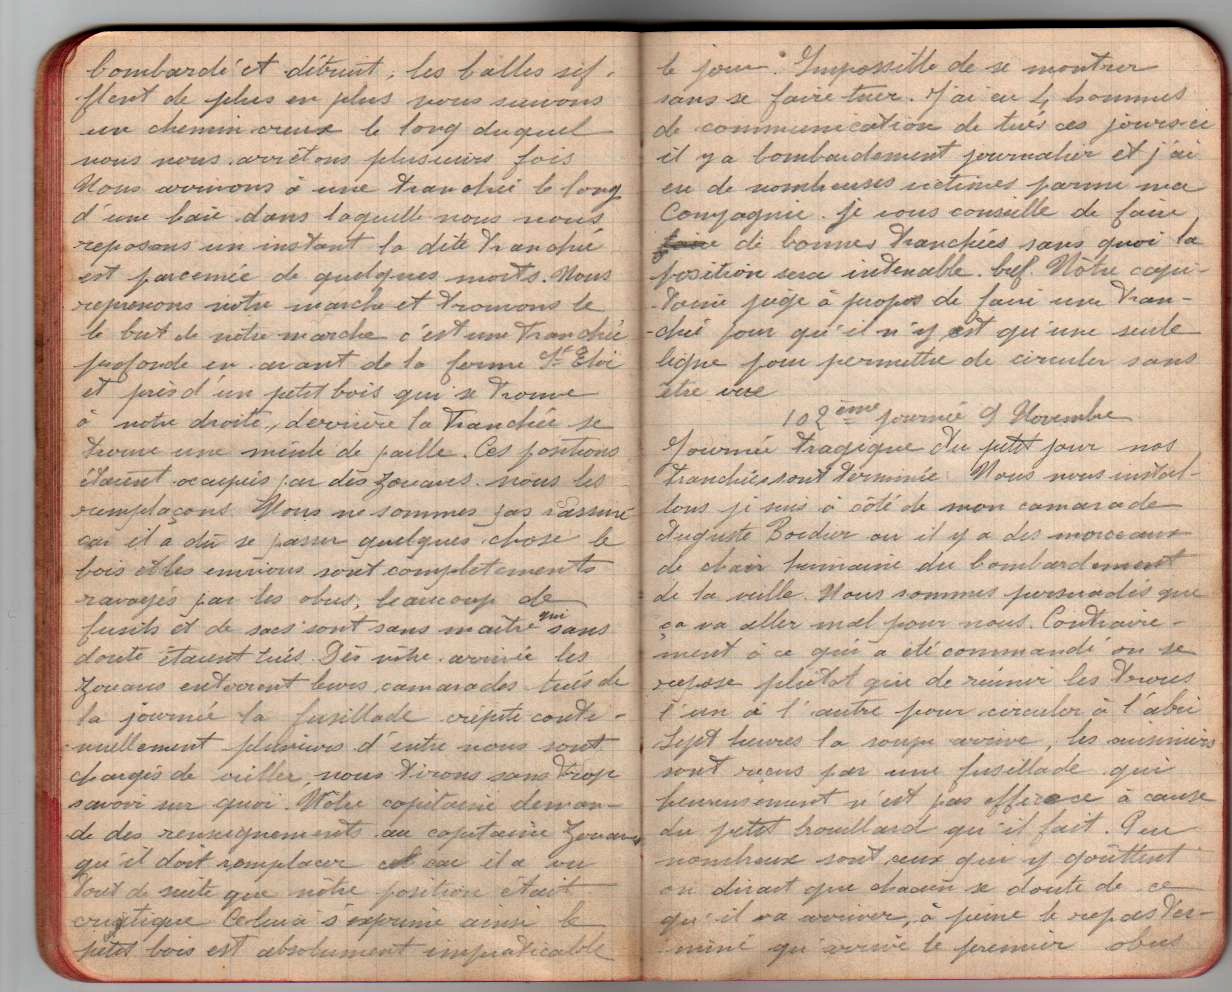 bombardé et détruit, les balles sif-
flent de plus en plus nous suivons
un chemin creux le long duquel
nous nous arrêtons plusieurs fois
Nous arrivons à une tranchée le long
d'une haie dans laquelle nous nous
reposons un instant la dite tranchée
est parcemée de quelques morts. Nous
reprenons notre marche et trouvons le
le but de notre marche c'est une tranchée
profonde en avant de la ferme St Eloi
et près d'un petit bois qui se trouve
à notre droite, derrière la tranchée se
trouve une meule de paille. Ces positions
étaient occupées par des zouaves. nous les
remplaçons. Nous ne sommes pas rassuré
car il a dû se passer quelques chose le
bois et les environs sont complètements
ravagés par les obus, beaucoup de
fusils et de sacs sont sans maitre qui sans
doute étaient tués. Dès nôtre arrivée les
zouaves enterrent leurs camarades tués de
la journée la fusillade crépite conti-
nuellement plusieurs d'entre nous sont
chargés de veiller, nous tirons sans trop
savoir sur quoi. Nôtre capitaine deman-
de des renseignements au capitaine zouaves
qu'il doit remplacer car il a vu
tout de suite que nôtre position était
crytique Celui-ci s'exprime ainsi le
petit bois est absolument impraticable
le jour. Impossible de se montrer
sans se faire tuer. J'ai eu 4 hommes
de communication de tués ces jours-ci
il y a bombardement journalier et j'ai
eu de nombreuses victimes parmi ma
Compagnie. je vous conseille de faire
faire de bonnes tranchées sans quoi la
position sera intenable. bref. Nôtre capi-
taine juge à propos de faire une tran-
chée pour qu'il n'y est qu'une seule
ligne pour permettre de circuler sans
être vue
102ème journée 9 Novembre
Journée tragique du petit jour nos
tranchées sont terminée. Nous nous instal-
lons je suis à côté de mon camarade
Auguste Bordier ou il y a des morceaux
de chair humaine du bombardement
de la veille. Nous sommes persuadés que
ça va aller mal pour nous. Contraire-
ment à ce qui a été commandé on se
repose plutôt que de réunir les trous
l'un à l'autre pour circuler à l'abri
Sept heures la soupe arrive, les cuisiniers
sont recus par une fusillade qui
heureusement n'est pas efficace à cause
du petit brouillard qu'il fait. Peu
nombreux sont ceux qui y goûttent
on dirait que chacun se doute de ce
qu'il va arriver, à peine le repas ter-
miné qu'arrive le premier obus